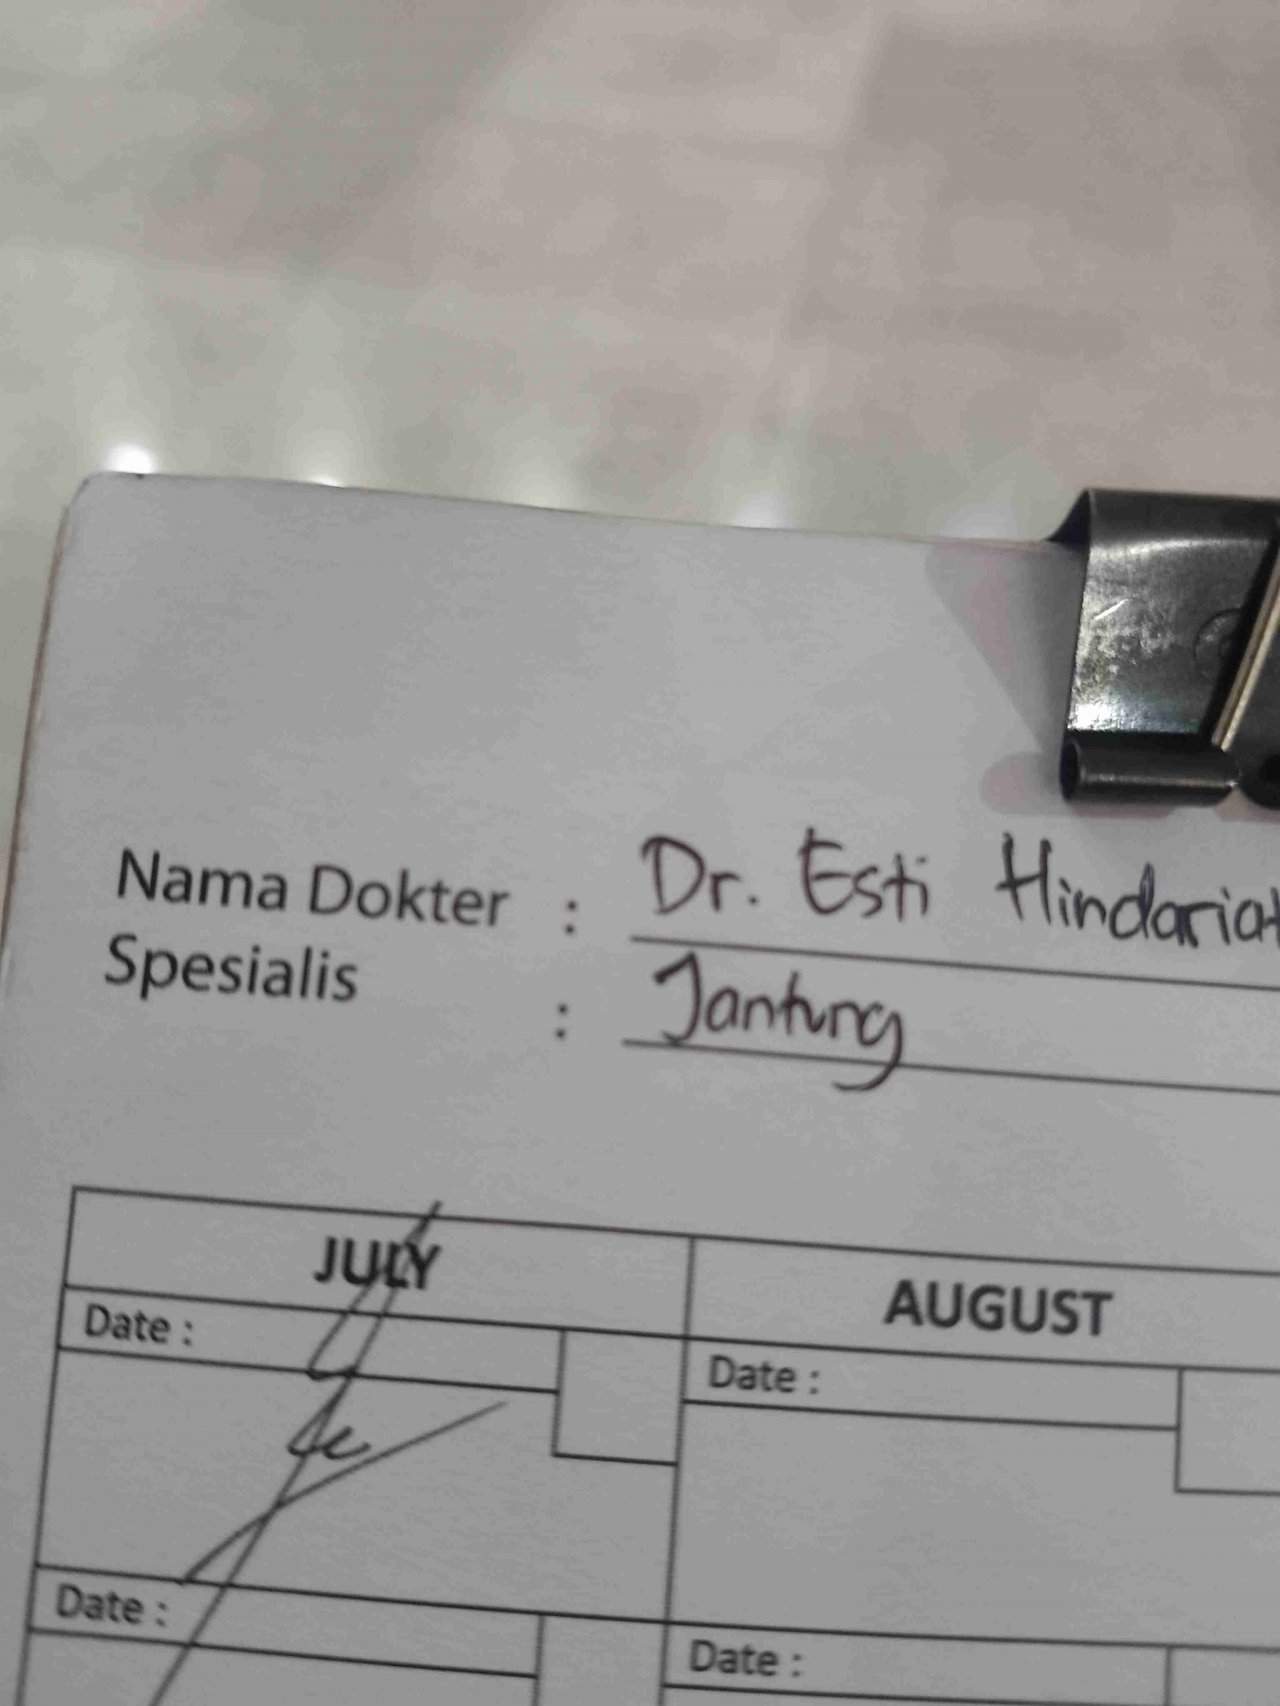 Nama Dokter : Dr. Esti Hindariat
Spesialis : Jantung
JULY AUGUST
Date :
Date :
Date :
Date :